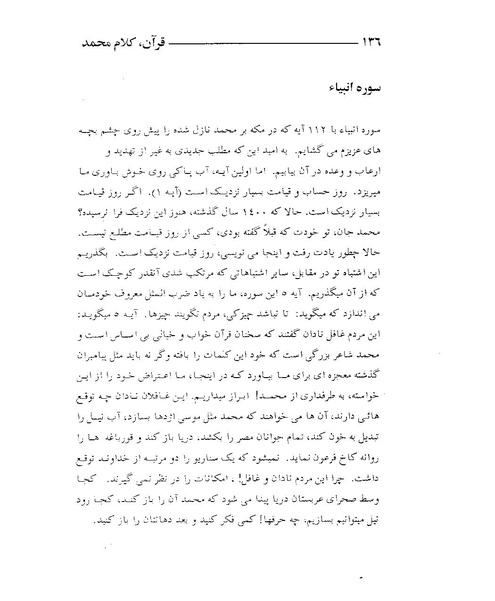 ۱۳۶ ــــــــــــــــــــــــــــ قرآن، کلام محمد
سوره انبیاء
سوره انبیاء با ۱۱۲ آیه که در مکه بر محمد نازل شده را پیش روی چشم بچه
های عزیزم می گشایم. به امید این که مطلب جدیدی به غیر از تهدید و
ارعاب و وعده در آن بیابیم. اما اولین آیه، آب پاکی روی خوش باوری ما
میریزد. روز حساب و قیامت بسیار نزدیک است (آیه ۱). اگر روز قیامت
بسیار نزدیک است. حالا که ۱۴۰۰ سال گذشته، هنوز این نزدیک فرا نرسیده؟
محمد جان، تو خودت که قبلاً گفته بودی، کسی از روز قیامت مطلع نیست.
حالا چطور یادت رفت و اینجا می نویسی، روز قیامت نزدیک است. بگذریم
این اشتباه تو در مقابل، سایر اشتباهاتی که مرتکب شدی آنقدر کوچک است
که از آن میگذریم. آیه ۵ این سوره، ما را به یاد ضرب المثل معروف خودمان
می اندازد که میگوید: تا نباشد چیزکی، مردم نگویند چیزها. آیه ۵ میگوید:
این مردم غافل نادان گفتند که سخنان قرآن خواب و خیالی بی اساس است و
محمد شاعر بزرگی است که خود این کلمات را بافته وگر نه باید مثل پیامبران
گذشته معجزه ای برای ما بیاورد که در اینجا، ما اعتراض خود را از این
خواسته، به طرفداری از محمد! ابراز میداریم. این غافلان نادان چه توقع
هائی دارند، آن ها می خواهند که محمد مثل موسی اژدها بسازد، آب نیل را
تبدیل به خون کند، تمام جوانان مصر را بکشد، دریا باز کند و قورباغه ها را
روانه کاخ فرعون نماید. نمیشود که یک سناریو را دو مرتبه از خداوند توقع
داشت. چرا این مردم نادان و غافل!، امکانات را در نظر نمی گیرند. کجا
وسط صحرای عربستان دریا پیدا می شود که محمد آن را باز کند، کجا رود
نیل میتوانیم بسازیم، چه حرفها! کمی فکر کنید و بعد دهانتان را باز کنید.